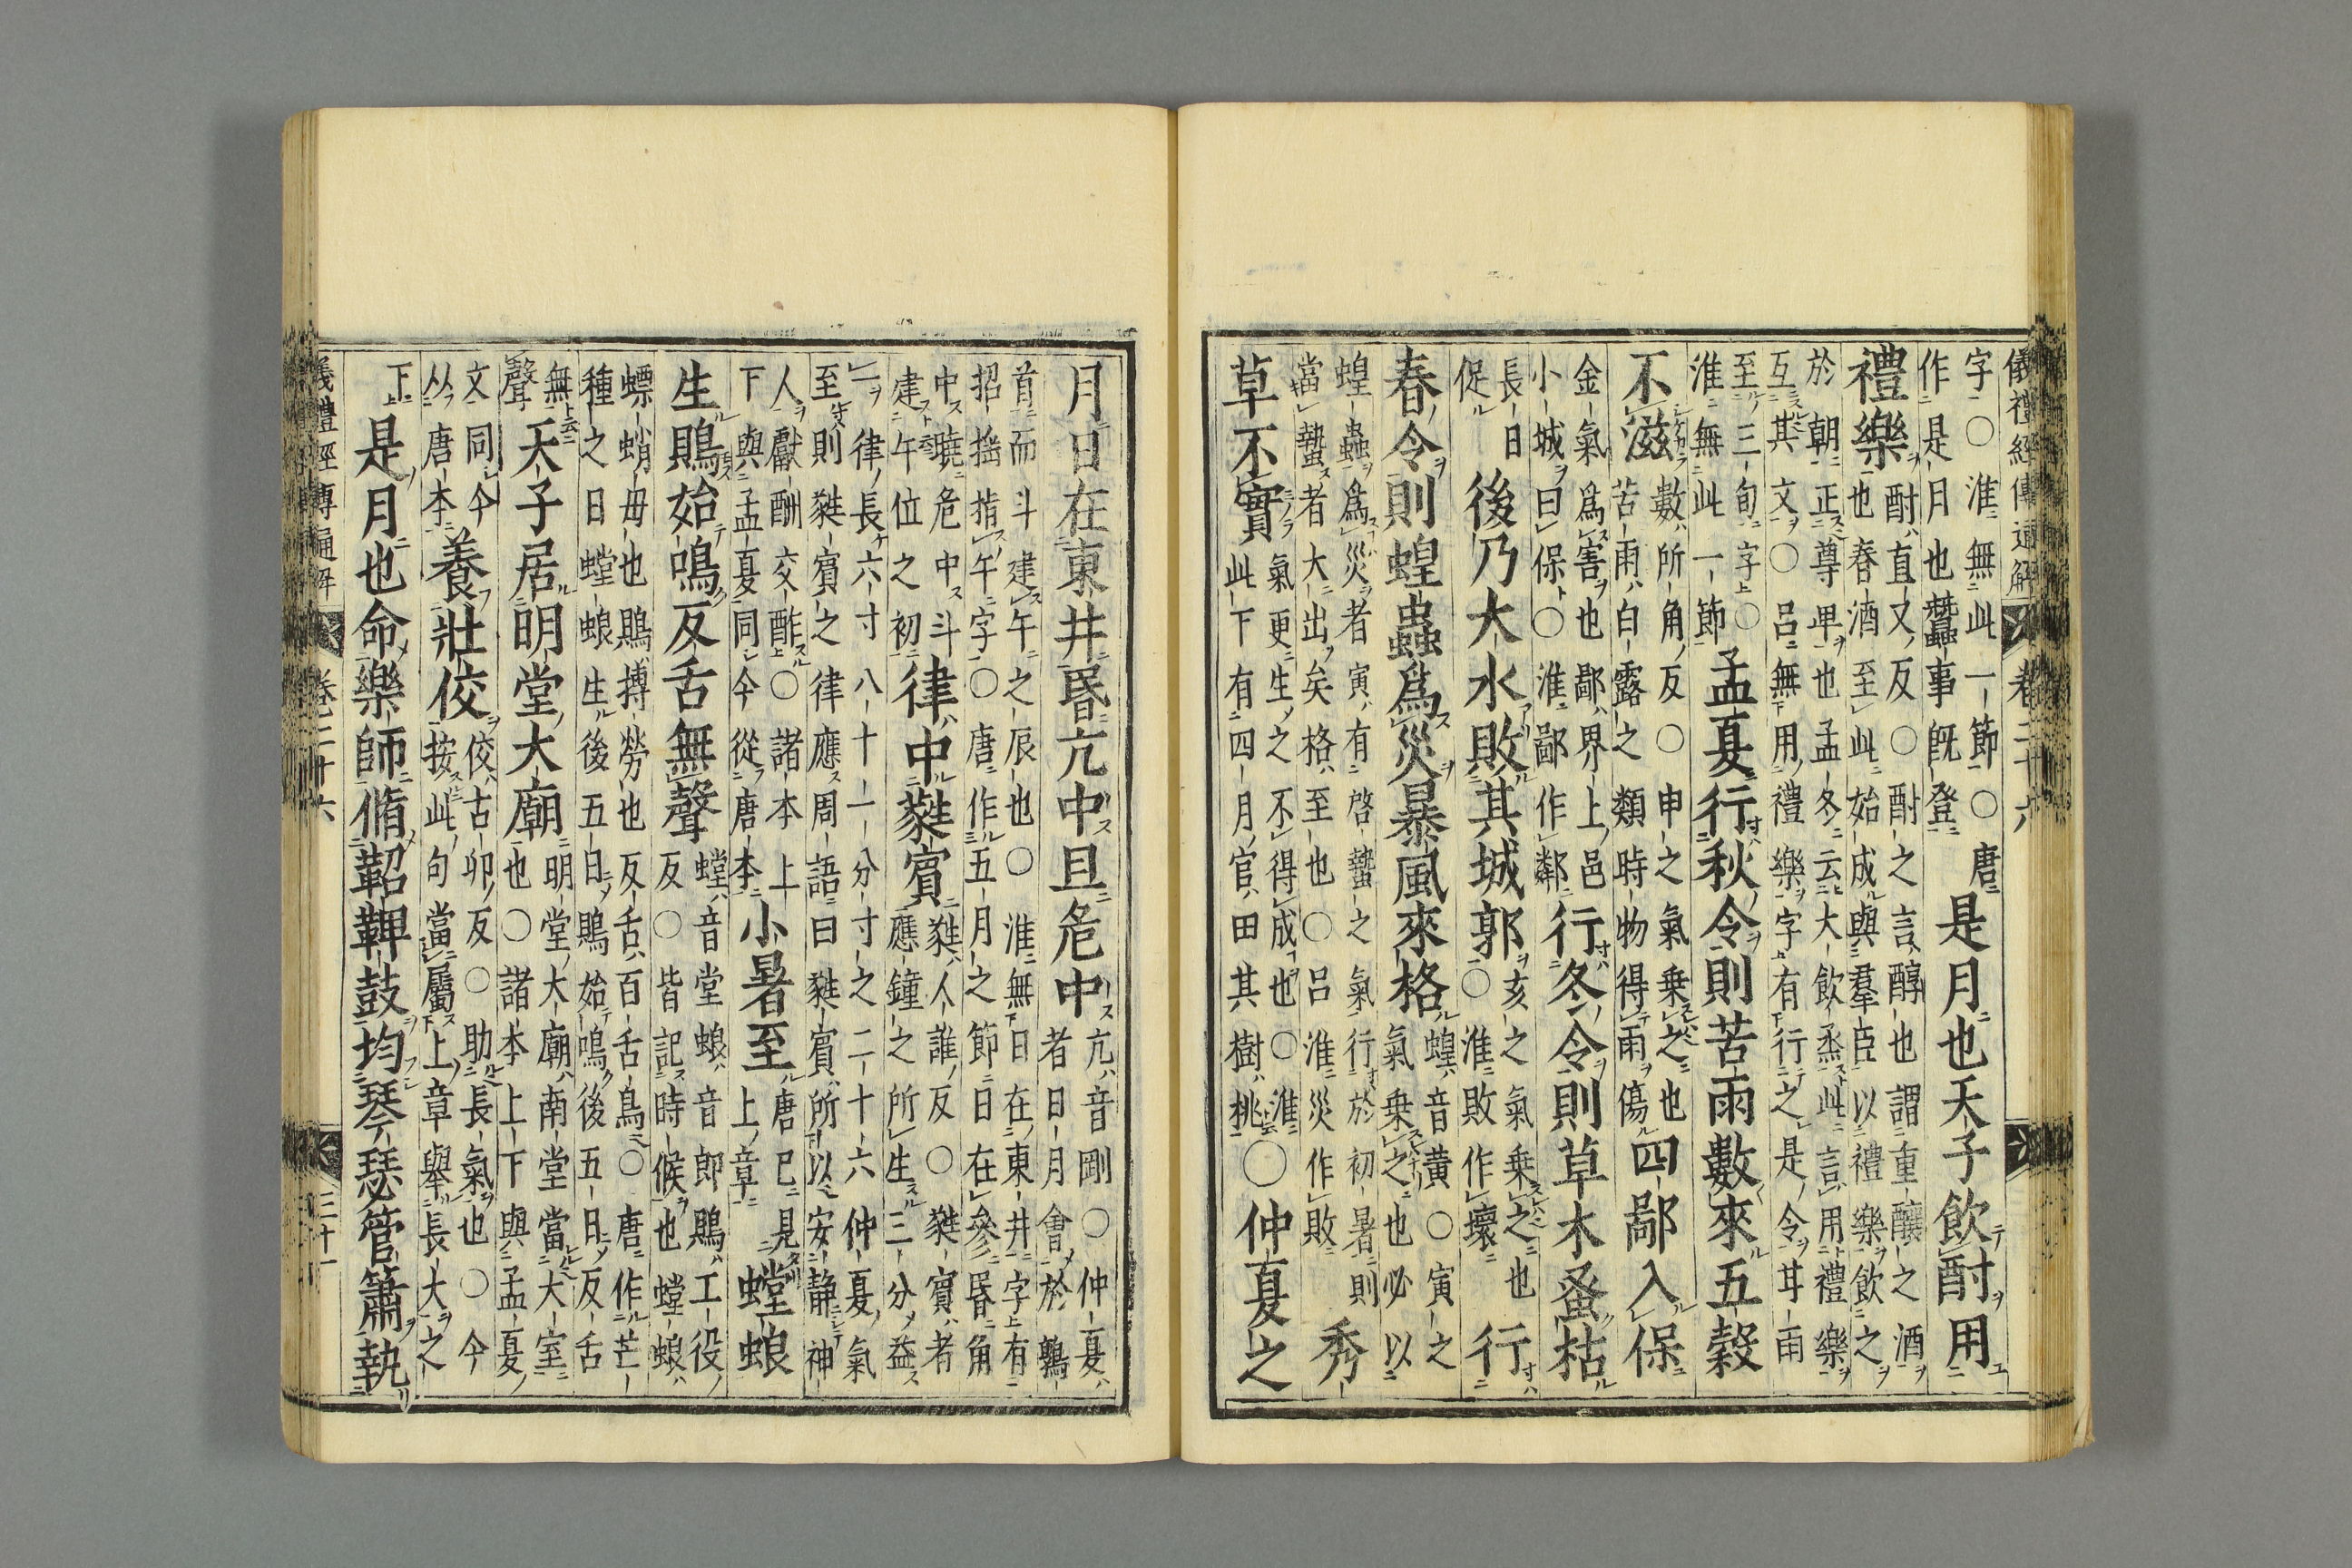 儀禮經傳通解 卷二十六
字〇淮無此一節〇唐
作是月也蠶事既登
是月也天子飲酎用
禮樂
酎直又反〇酎之言醇也謂重釀之酒
也春酒至此始成與羣臣以禮樂飲之
於朝正尊卑也孟冬云大飲烝此言用禮樂
互其文〇呂無用禮樂字有行之是令甘雨
至三旬字〇
淮無此一節
孟夏行秋令則苦雨數來五穀
不滋
數所角反〇申之氣乗之也
苦雨白露之類時物得雨傷
四鄙入保
金氣爲害也鄙界上邑
小城曰保〇淮鄙作鄰
行冬令則草木蚤枯
長日
促
後乃大水敗其城郭
亥之氣乗之也
〇淮敗作壞
行
春令則蝗蟲爲災暴風來格
蝗音黃〇寅之
氣乗之也必以
蝗蟲爲災者寅有啓蟄之氣行於初暑則
當蟄者大出矣格至也〇呂淮災作敗
秀
草不實
氣更生之不得成也〇淮
此下有四月官田其樹桃
〇仲夏之
月日在東井昏亢中旦危中
亢音剛〇仲夏
者日月會於鶉
首而斗建午之辰也〇淮無日在東井字有
招搖指午字〇唐作五月之節日在參昏角
中曉危中斗
建午位之初
律中蕤賓
蕤人誰反〇蕤賓者
應鐘之所生三分益
一律長六寸八十一分寸之二十六仲夏氣
至則蕤賓之律應周語曰蕤賓所以安靜神
人獻酬交酢〇諸本上
下與孟夏同今從唐本
小暑至
唐巳見
上章
螳蜋
生鵙始鳴反舌無聲
螳音堂蜋音郎鵙工役
反〇皆記時候也螳蜋
螵蛸毋也鵙搏勞也反舌百舌鳥〇唐作芒
種之日螳蜋生後五日鵙始鳴後五日反舌
無
聲
天子居明堂大廟
明堂大廟南堂當大室
也〇諸本上下與孟夏
文同今
从唐本
養壯佼
佼古卯反〇助長氣也〇今
按此句當屬上章舉長大之
下
是月也命樂師脩鞀鞞鼓均琴瑟管簫執
儀禮經傳通解 卷二十六 三十一